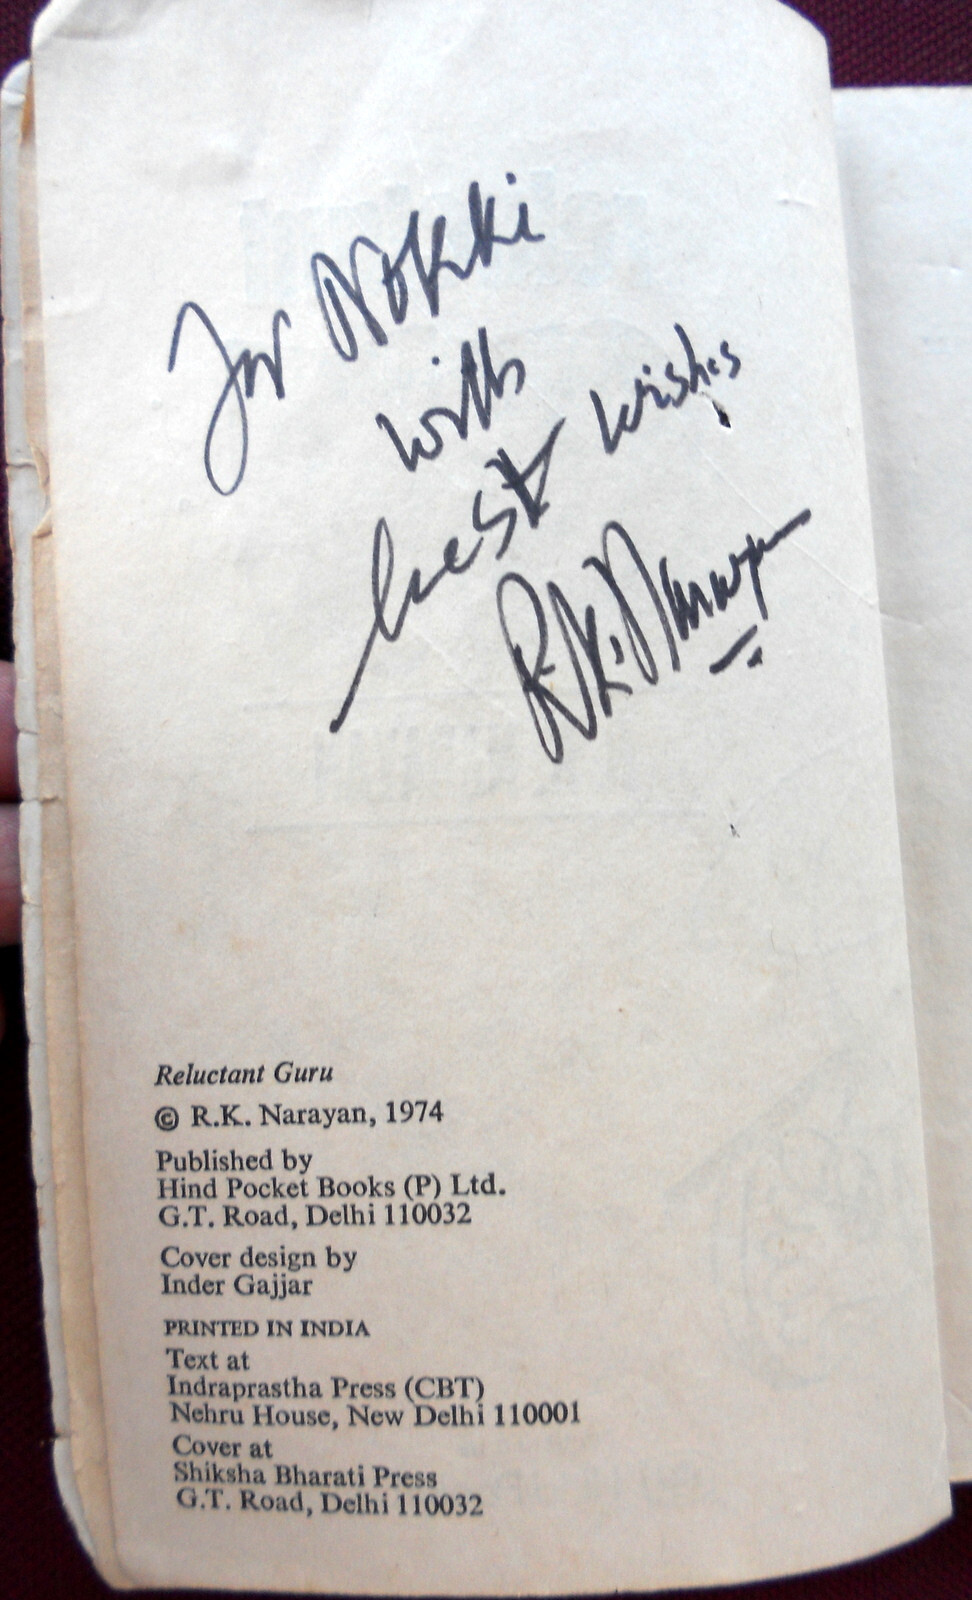 For Nokki
with
best wishes
R.K. Narayan
Reluctant Guru
© R.K. Narayan, 1974
Published by
Hind Pocket Books (P) Ltd.
G.T. Road, Delhi 110032
Cover design by
Inder Gajjar
PRINTED IN INDIA
Text at
Indraprastha Press (CBT)
Nehru House, New Delhi 110001
Cover at
Shiksha Bharati Press
G.T. Road, Delhi 110032